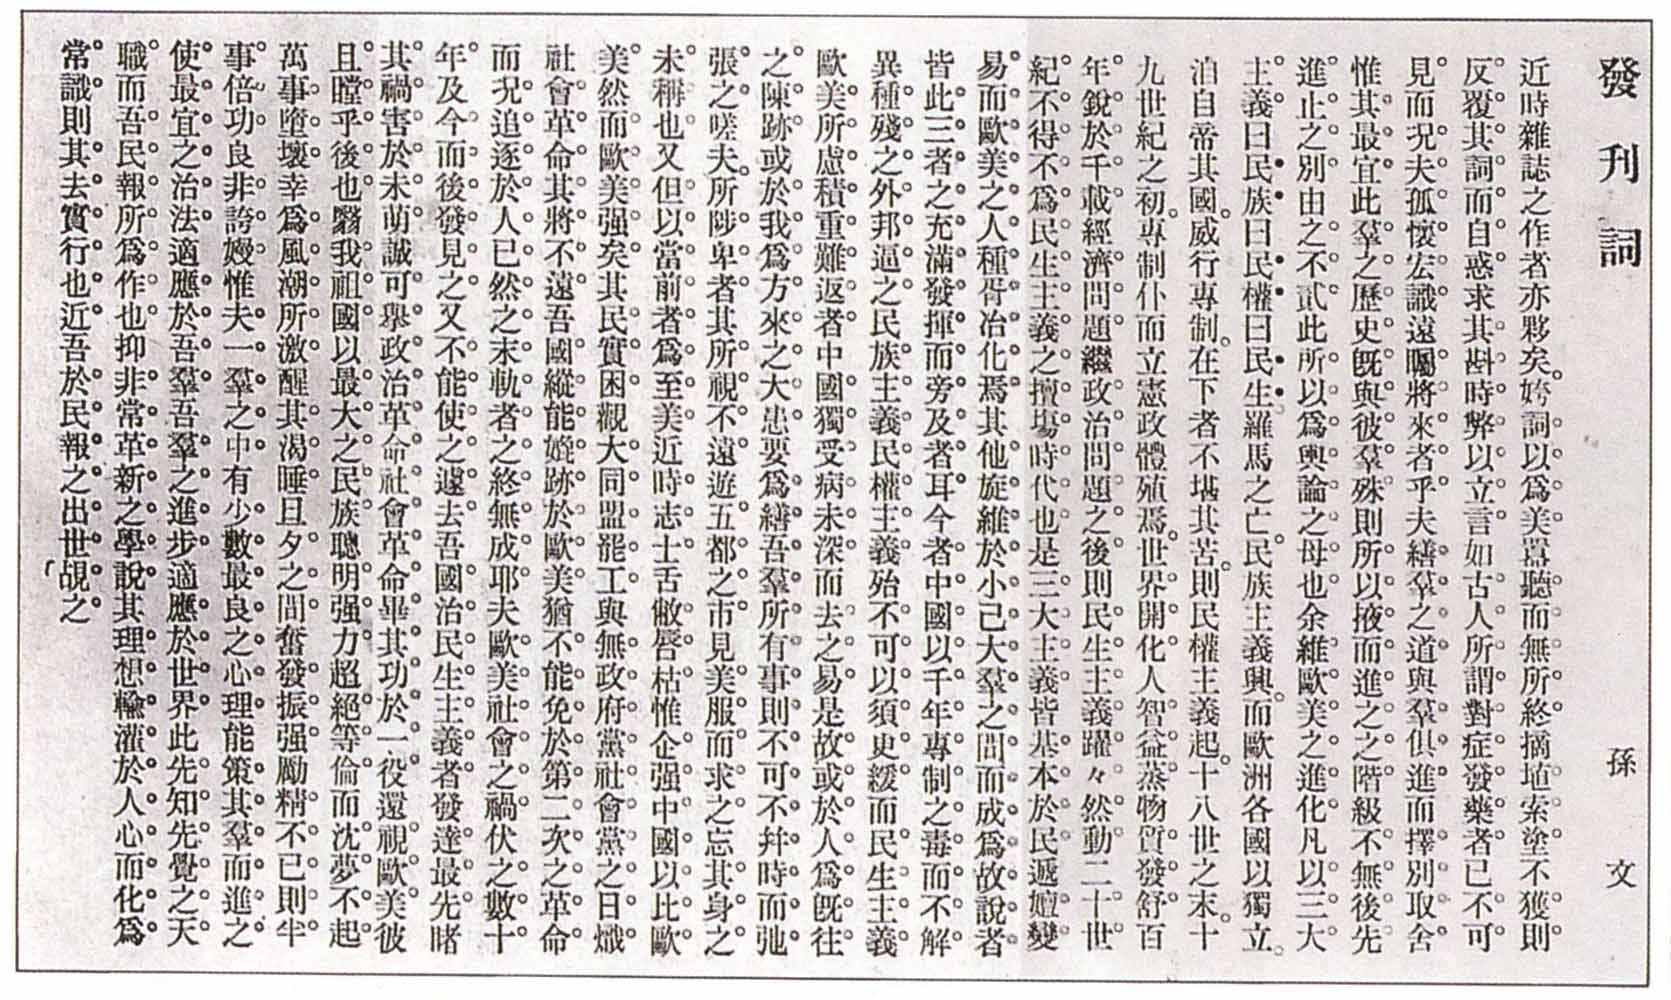 發刊詞
孫文
近時雜誌之作者亦夥矣。姱詞以爲美囂聽而無所終摘埴索塗不獲則
反覆其詞而自惑求其斟時弊以立言如古人所謂對症發藥者已不可
見而況夫孤懷宏識遠矚將來者乎夫繕羣之道與羣俱進而擇別取舍
惟其最宜此羣之歷史旣與彼羣殊則所以掖而進之之階級不無後先
進止之別由之不貳此所以爲輿論之母也余維歐美之進化凡以三大
主義曰民族曰民權曰民生羅馬之亡。民族主義興。而歐洲各國以獨立。
洎自帝其國。威行專制。在下者不堪其苦。則民權主義起。十八世之末。十
九世紀之初。專制仆而立憲政體殖焉。世界開化。人智益蒸物質發舒百
年銳於千載經濟問題繼政治問題之後則民生主義躍々然動二十世
紀不得不爲民生主義之擅塲時代也是三大主義皆基本於民遞嬗變
易而歐美之人種胥冶化焉其他旋維於小己大羣之間而成爲故說者
皆此三者之充滿發揮而旁及者耳今者中國以千年專制之毒而不解
異種殘之外邦逼之民族主義民權主義殆不可以須臾緩而民生主義
歐美所慮積重難返者中國獨受病未深而去之易是故或於人爲旣往
之陳跡或於我爲方來之大患要爲繕吾羣所有事則不可不幷時而弛
張之嗟夫。所陟卑者其所視不遠遊五都之市見美服而求之忘其身之
未稱也又但以當前者爲至美近時志士舌敝唇枯惟企强中國以比歐
美然而歐美强矣其民實困觀大同盟罷工與無政府黨社會黨之日熾
社會革命其將不遠吾國縱能媲跡於歐美猶不能免於第二次之革命
而況追逐於人已然之末軌者之終無成耶夫歐美社會之禍伏之數十
年及今而後發見之又不能使之遽去吾國治民生主義者發達最先睹
其禍害於未萌誠可舉政治革命社會革命畢其功於一役還視歐美彼
且瞠乎後也翳我祖國以最大之民族聰明强力超絕等倫而沈夢不起
萬事墮壞幸爲風潮所激醒其渴睡旦夕之間奮發振强勵精不已則半
事倍功良非誇嫚惟夫一羣之中有少數最良之心理能策其羣而進之
使最宜之治法適應於吾羣吾羣之進步適應於世界此先知先覺之天
職而吾民報所爲作也抑非常革新之學說其理想輸灌於人心而化爲
常識則其去實行也近吾於民報之出世覘之